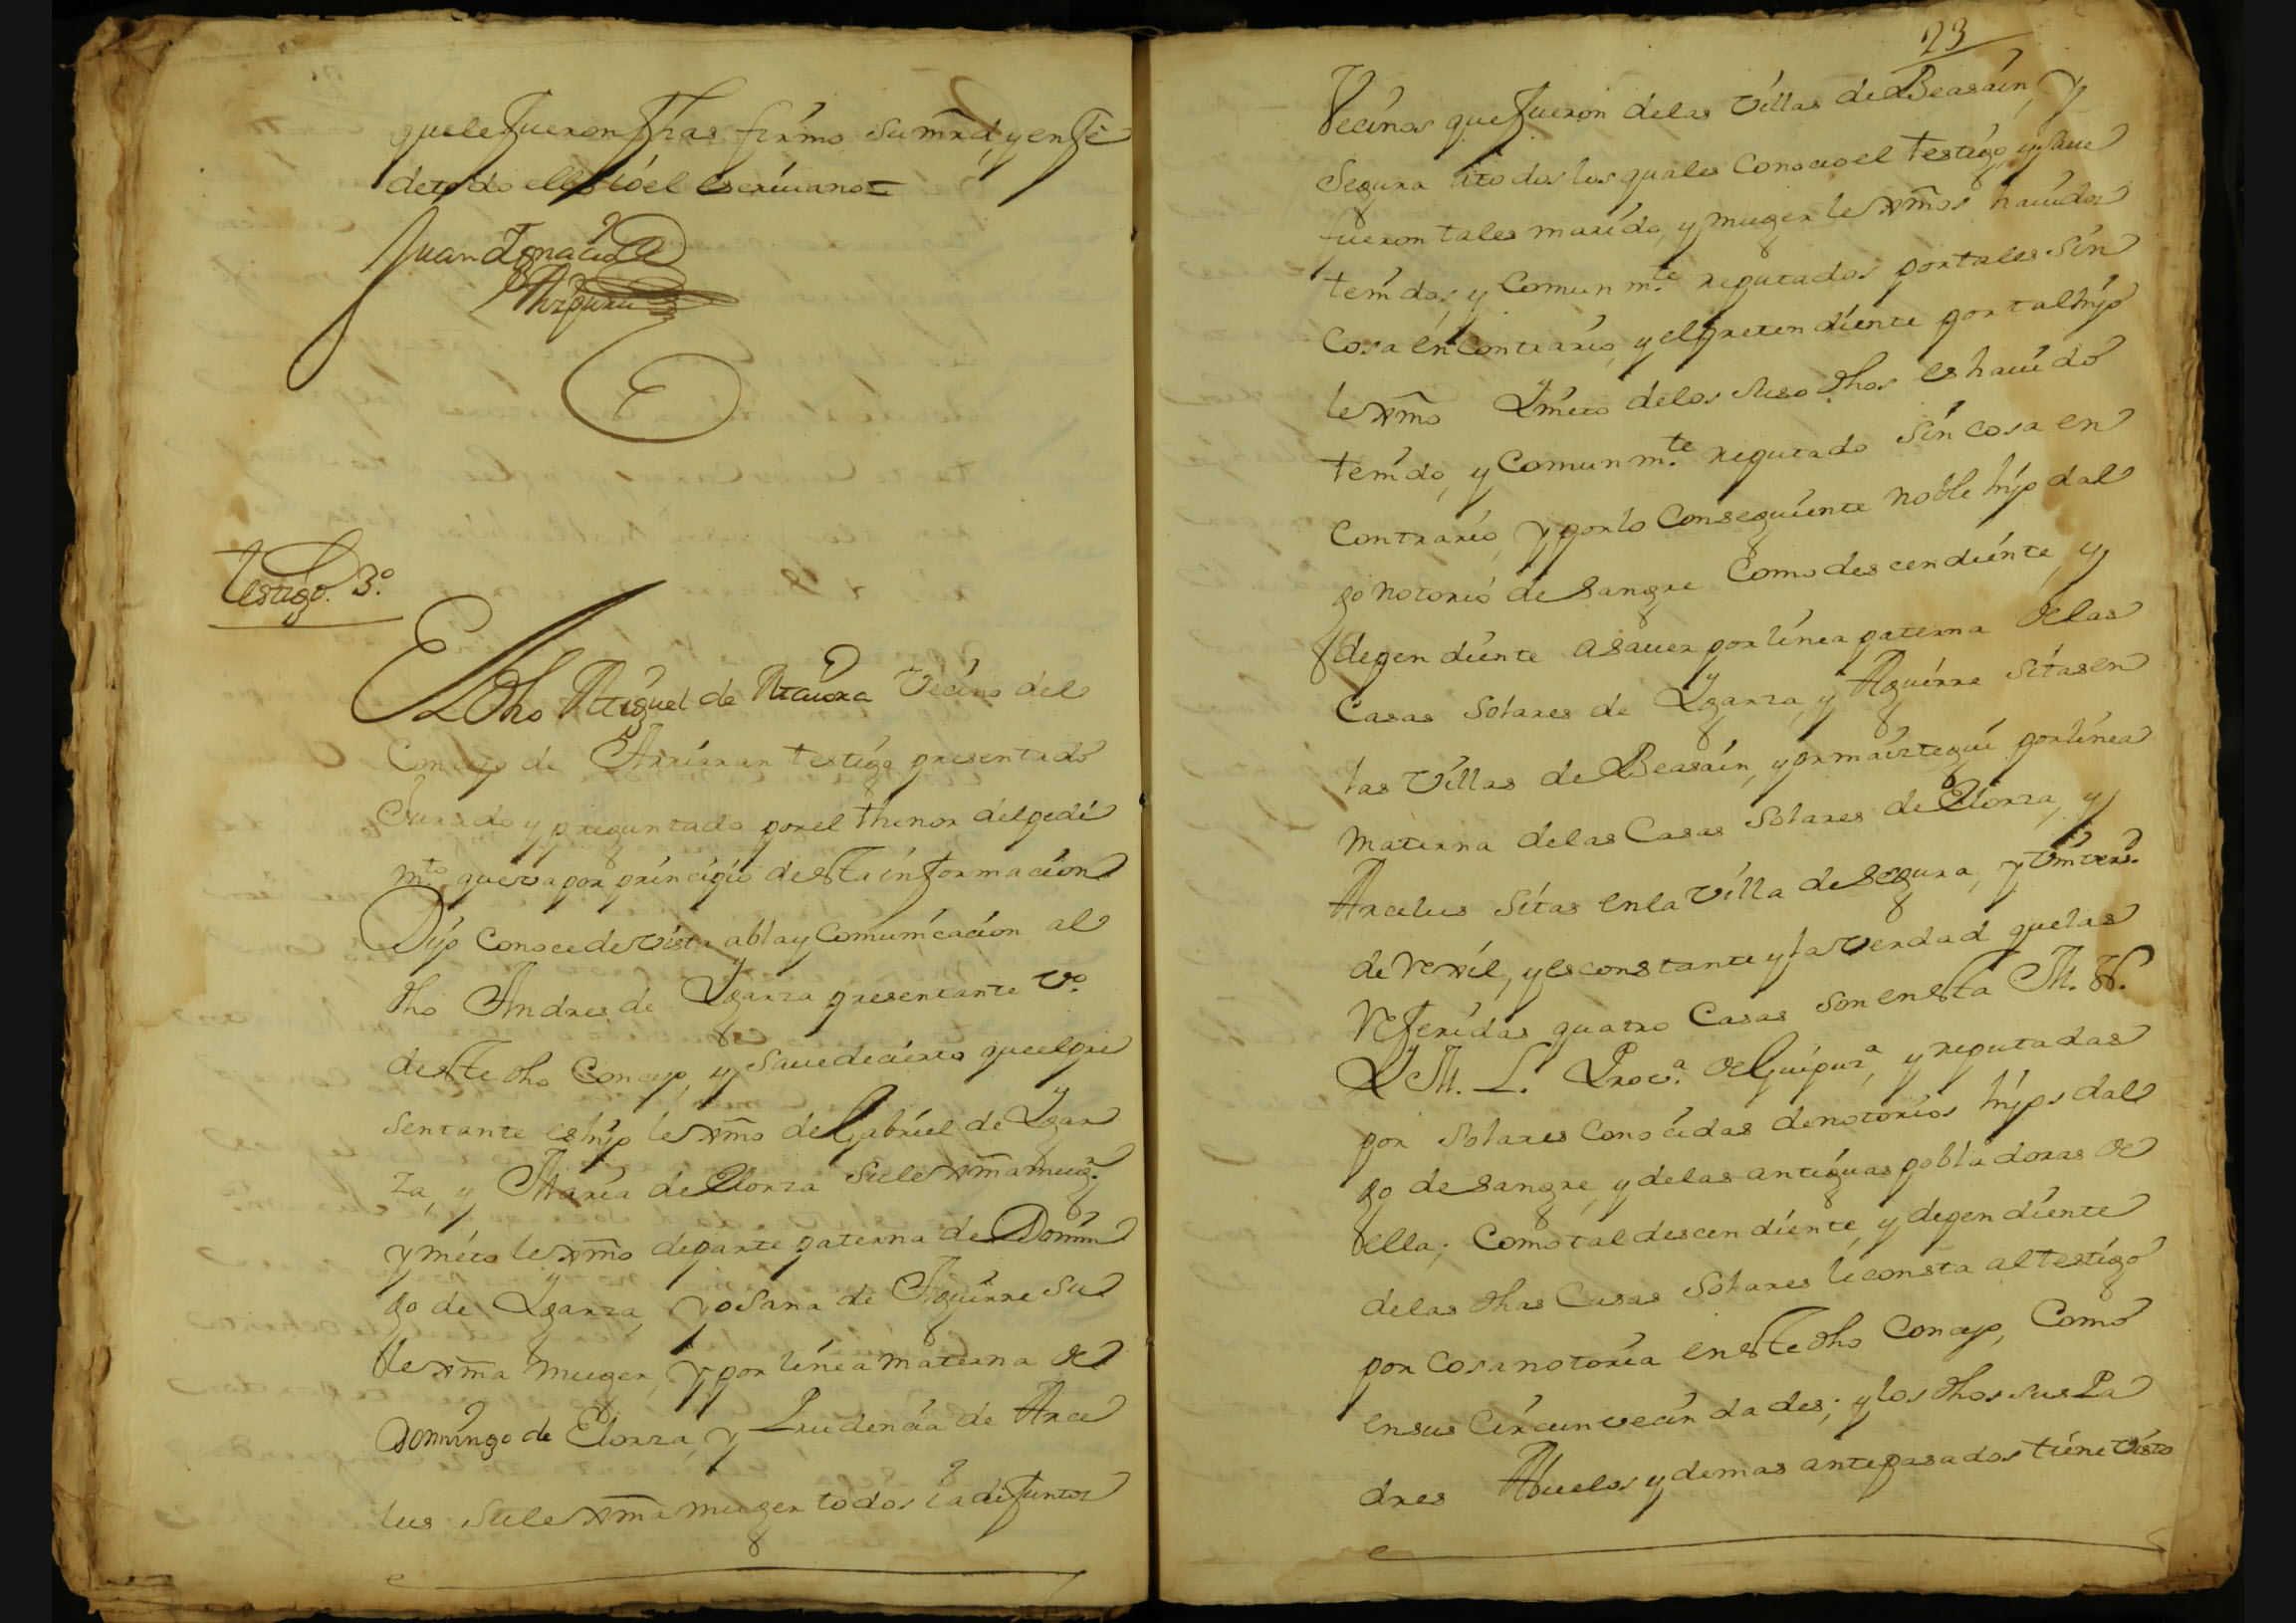 que le fueron fhas firmo su mrd, y en fé
de todo ello ló el escriuano=
Juan Ignacio de
Aizpuru
Testigo. 3º.
El dho Miguel de Mauora Vecino del
Concejo de Arriaran testigo presentado
Jurado y preguntado por el thenor del pedi
mto. que va por principio de esta informacion
Dijo conoce de vista abla y comunicacion al
dho Andres de Ygarza presentante vº.
de este dho Concejo, y saue de cierto que el pre
sentante es hijo lexmo de Gabriel de Ygar
za, y Maria de Elorza su lexma mugr.
y nieto lexmo de parte paterna de Domin
go de Ygarza, y osana de Aguirre su
lexma muger, y por linea materna de
Domingo de Elorza, y Prudencia de Arce
lus su lexma muger todos ia difuntos
23
Vecinos que fueron de las Villas de Beasain, y
Segura a todos los quales conocio el testigo, y saue
fueron tales marido, y muger lexmos hauidos
tenidos, y comunmte. reputados por tales sin
cosa en contrario, y el pretendiente por tal hijo
lexmo Y nieto de los suso dhos es hauido
tenido, y comunmte. reputado sin cosa en
contrario, y por lo consequiente noble hijo dal
go notorio de sangre como descendiente, y
dependiente a sauer por linea paterna de las
Casas solares de Ygarza, y Aguirre sitas en
las Villas de Beasain, y ormaiztegui por linea
materna de las Casas solares de Elorza, y
Arcelus sitas en la villa de Segura, y Vniverd.
de Yexil, y es constante y la verdad que las
Referidas quatro Casas son en esta M. N.
Y M. L. Prova. de Guipuza, y reputadas
por solares conocidas de notorios hijos dal
go de sangre, y de las antiguas pobladoras de
ella; como tal descendiente, y dependiente
de las dhas Casas solares le consta al testigo
por cosa notoria en este dho Concejo, como
en sus circunvecindades; y los dhos sus Pa
dres Abuelos y demas antepasados tiene visto